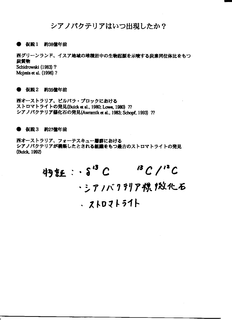 シアノバクテリアはいつ出現したか？
● 仮説1 約38億年前
西グリーンランド、イスア地域の堆積岩中の生物起源を示唆する炭素同位体比をもつ
炭質物
Schidrowski (1983) ?
Mojzsis et al. (1996) ?
● 仮説2 約35億年前
西オーストラリア、ピルバラ・ブロックにおける
ストロマトライトの発見(Buick et al., 1980; Lowe, 1980) ??
シアノバクテリア様化石の発見(Awramik et al., 1983; Schopf, 1993) ??
● 仮説3 約27億年前
西オーストラリア、フォーテスキュー層群における
シアノバクテリアが構築したとされる組織をもつ最古のストロマトライトの発見
(Buick, 1992)
物証：・δ¹³C ¹³C/¹²C
・シアノバクテリア様微化石
・ストロマトライト